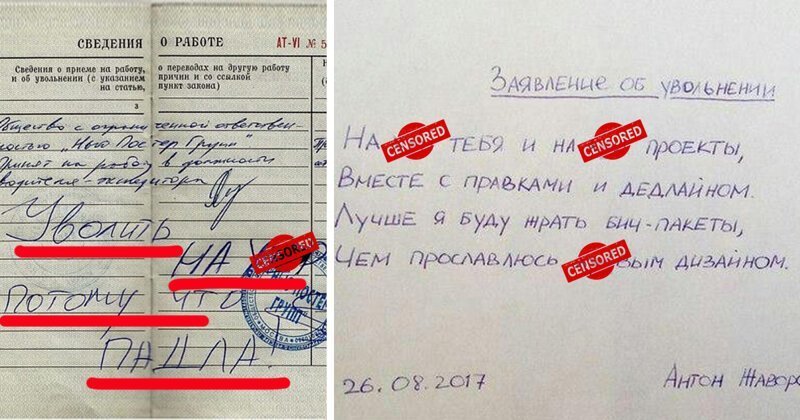 СВЕДЕНИЯ О РАБОТЕ АТ-VI № 5
Сведения о приеме на работу, о переводах на другую работу
и об увольнении (с указанием причин и со ссылкой
на статью, пункт закона)
3
Общество с ограниченной ответствен-
ностью „Нью Постер Групп"
Принят на работу в должности
водителя-экспедитора
Уволить
НА CENSORED
ПОТОМУ ЧТО
ПАДЛА!
ПОСТЕР
ГРУПП"
МОСКВА
ЗАЯВЛЕНИЕ ОБ УВОЛЬНЕНИИ
НА CENSORED ТЕБЯ И НА CENSORED ПРОЕКТЫ,
ВМЕСТЕ С ПРАВКАМИ И ДЕДЛАЙНОМ.
ЛУЧШЕ Я БУДУ ЖРАТЬ БИЧ-ПАКЕТЫ,
ЧЕМ ПРОСЛАВЛЮСЬ CENSORED ВЫМ ДИЗАЙНОМ.
26.08.2017 АНТОН ЖАВОРО